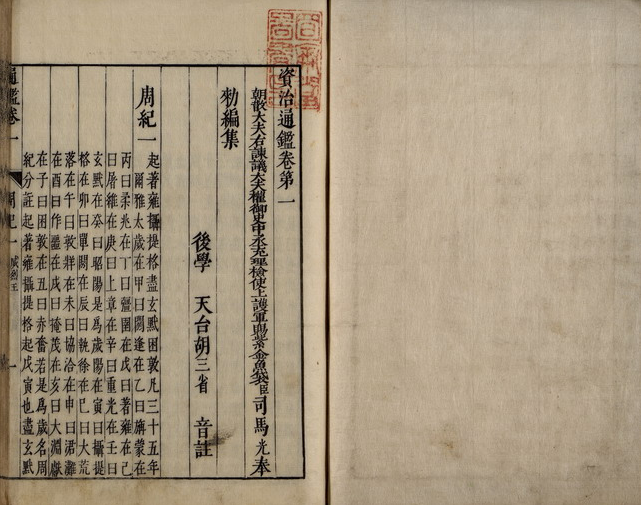 資治通鑑卷第一
朝散大夫右諫議大夫權御史中丞充理檢使上護軍賜紫金魚袋臣司馬光奉
勑編集
後學 天台胡三省 音註
周紀一
起著雍攝提格盡玄黓困敦凡三十五年
爾雅太歲在甲曰閼逢在乙曰旃蒙在
丙曰柔兆在丁曰彊圉在戊曰著雍在己
曰屠維在庚曰上章在辛曰重光在壬曰
玄黓在癸曰昭陽是為歲陽在寅曰攝提
格在卯曰單閼在辰曰執徐在巳曰大荒
落在午曰敦牂在未曰協洽在申曰涒灘
在酉曰作噩在戌曰掩茂在亥曰大淵獻
在子曰困敦在丑曰赤奮若是為歲名周
紀分註起著雍攝提格起戊寅也盡玄黓
通鑑卷一
周紀一
威烈王
一